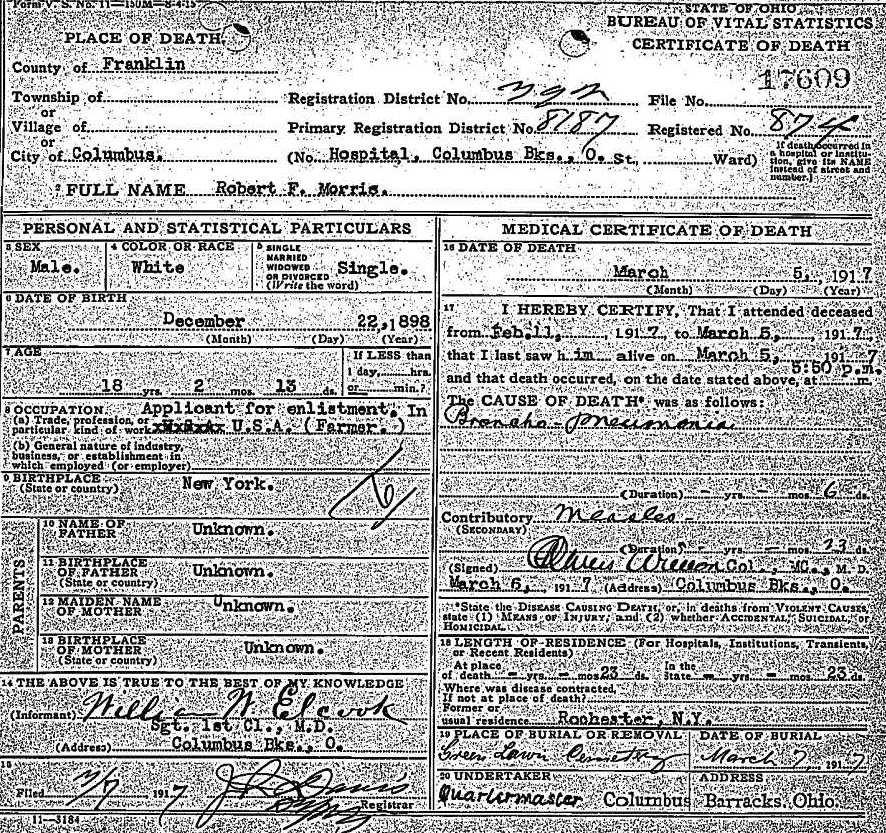 Form V. S. No. 11—150M—8-4-15
STATE OF OHIO
BUREAU OF VITAL STATISTICS
CERTIFICATE OF DEATH
PLACE OF DEATH
County of Franklin
17609
Township of
Registration District No.
File No.
or
Village of
Primary Registration District No. 8187
Registered No. 874
or
City of Columbus.
(No. Hospital, Columbus Bks., O. St., Ward)
If death occurred in a hospital or institution, give its NAME instead of street and number.]
2 FULL NAME Robert F. Morris.
PERSONAL AND STATISTICAL PARTICULARS
3 SEX
Male.
4 COLOR OR RACE
White
5 SINGLE
MARRIED
WIDOWED
OR DIVORCED
(Write the word)
Single.
6 DATE OF BIRTH
December 22, 1898
(Month) (Day) (Year)
7 AGE
18 yrs. 2 mos. 13 ds.
If LESS than
1 day, hrs.
or min.?
8 OCCUPATION. Applicant for enlistment. In
(a) Trade, profession, or
particular kind of work U.S.A. (Farmer.)
(b) General nature of industry,
business, or establishment in
which employed (or employer)
9 BIRTHPLACE
(State or country)
New York.
PARENTS
10 NAME OF
FATHER
Unknown.
11 BIRTHPLACE
OF FATHER
(State or country)
Unknown.
12 MAIDEN NAME
OF MOTHER
Unknown.
13 BIRTHPLACE
OF MOTHER
(State or country)
Unknown.
14 THE ABOVE IS TRUE TO THE BEST OF MY KNOWLEDGE
(Informant) William W. Elcook
Sgt. 1st Cl., M.D.
(Address) Columbus Bks., O.
15
Filed 3/7 1917
Registrar
11—3184
MEDICAL CERTIFICATE OF DEATH
16 DATE OF DEATH
March 5, 1917
(Month) (Day) (Year)
17 I HEREBY CERTIFY, That I attended deceased
from Feb. 11, 1917, to March 5, 1917
that I last saw him alive on March 5, 1917
and that death occurred, on the date stated above, at 5:50 p.m. m.
The CAUSE OF DEATH* was as follows:
Broncho-Pneumonia
(Duration) - yrs. - mos. 6 ds.
Contributory Measles
(SECONDARY)
(Duration) - yrs. - mos. 23 ds.
(Signed) Col., MC., M. D.
March 6, 1917 (Address) Columbus Bks., O.
*State the DISEASE CAUSING DEATH, or, in deaths from VIOLENT CAUSES,
state (1) MEANS OF INJURY; and (2) whether ACCIDENTAL, SUICIDAL, or
HOMICIDAL.
18 LENGTH OF RESIDENCE (For Hospitals, Institutions, Transients,
or Recent Residents)
At place
of death - yrs. - mos. 23 ds.
In the
State - yrs. - mos. 23 ds.
Where was disease contracted,
If not at place of death?
Former or
usual residence Rochester, N.Y.
19 PLACE OF BURIAL OR REMOVAL
Green Lawn Cemetery
DATE OF BURIAL
March 7, 1917
20 UNDERTAKER
Quartermaster
ADDRESS
Columbus Barracks, Ohio.